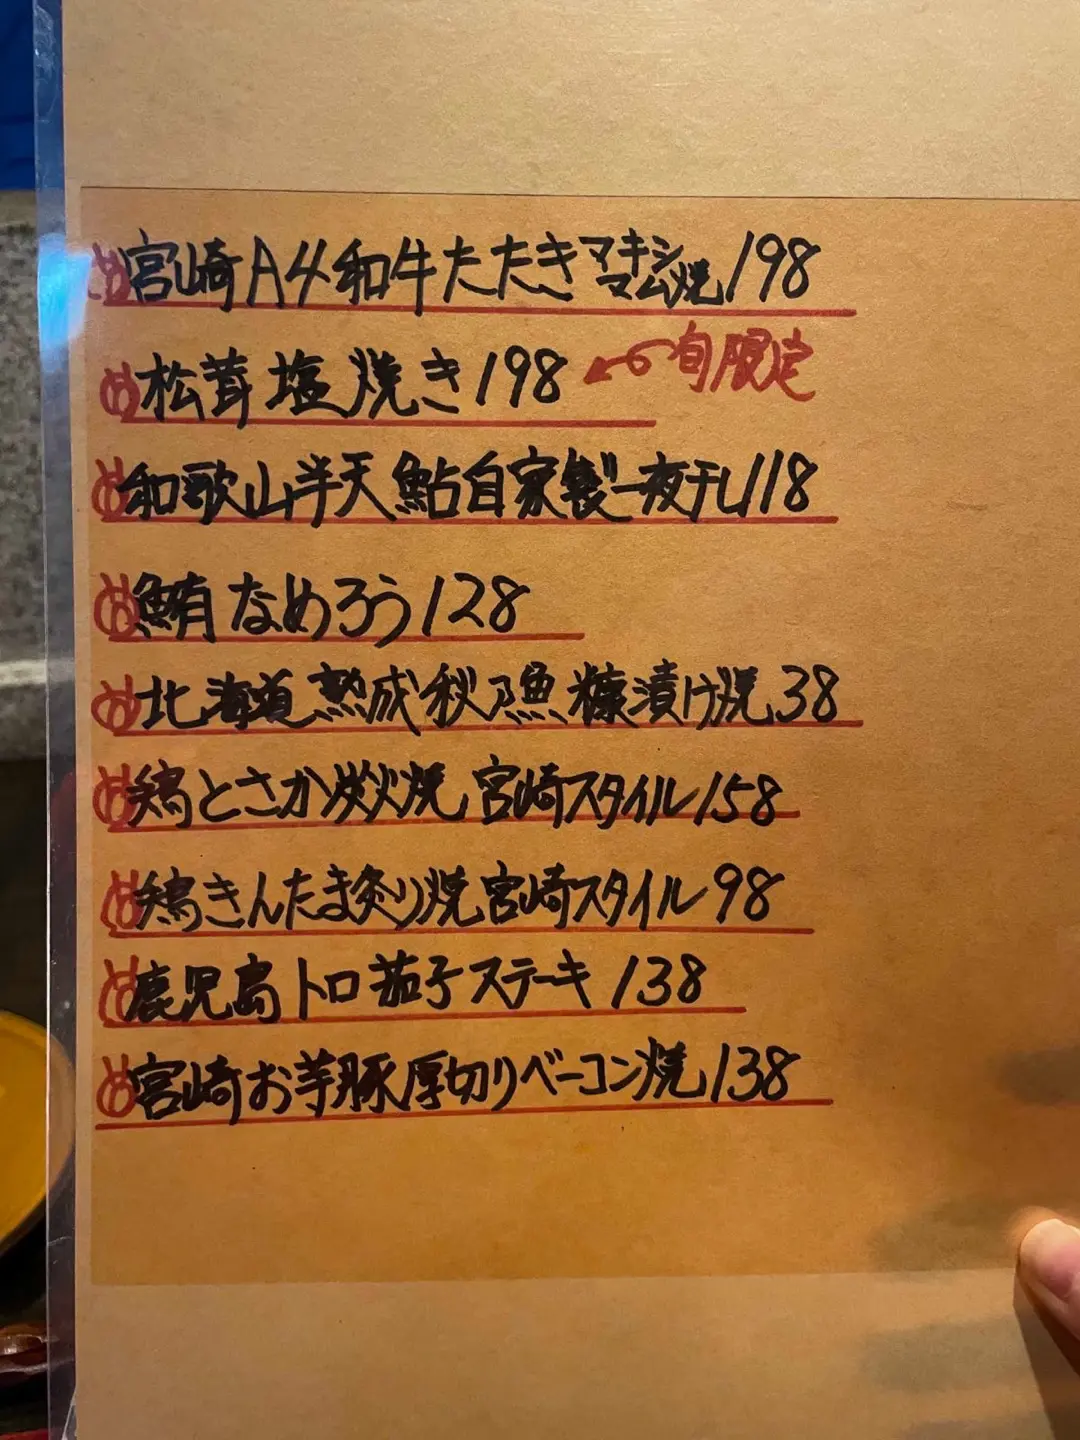 宮崎A4和牛たたきマキシマム焼198
松茸塩焼き198 旬限定
和歌山半天鮎自家製一夜干し118
鮪なめろう128
北海道熟成秋刀魚糠漬け焼38
鶏とさか炭火焼 宮崎スタイル158
鶏きんたま炙り焼宮崎スタイル98
鹿児島トロ茄子ステーキ138
宮崎お芋豚厚切りベーコン焼138